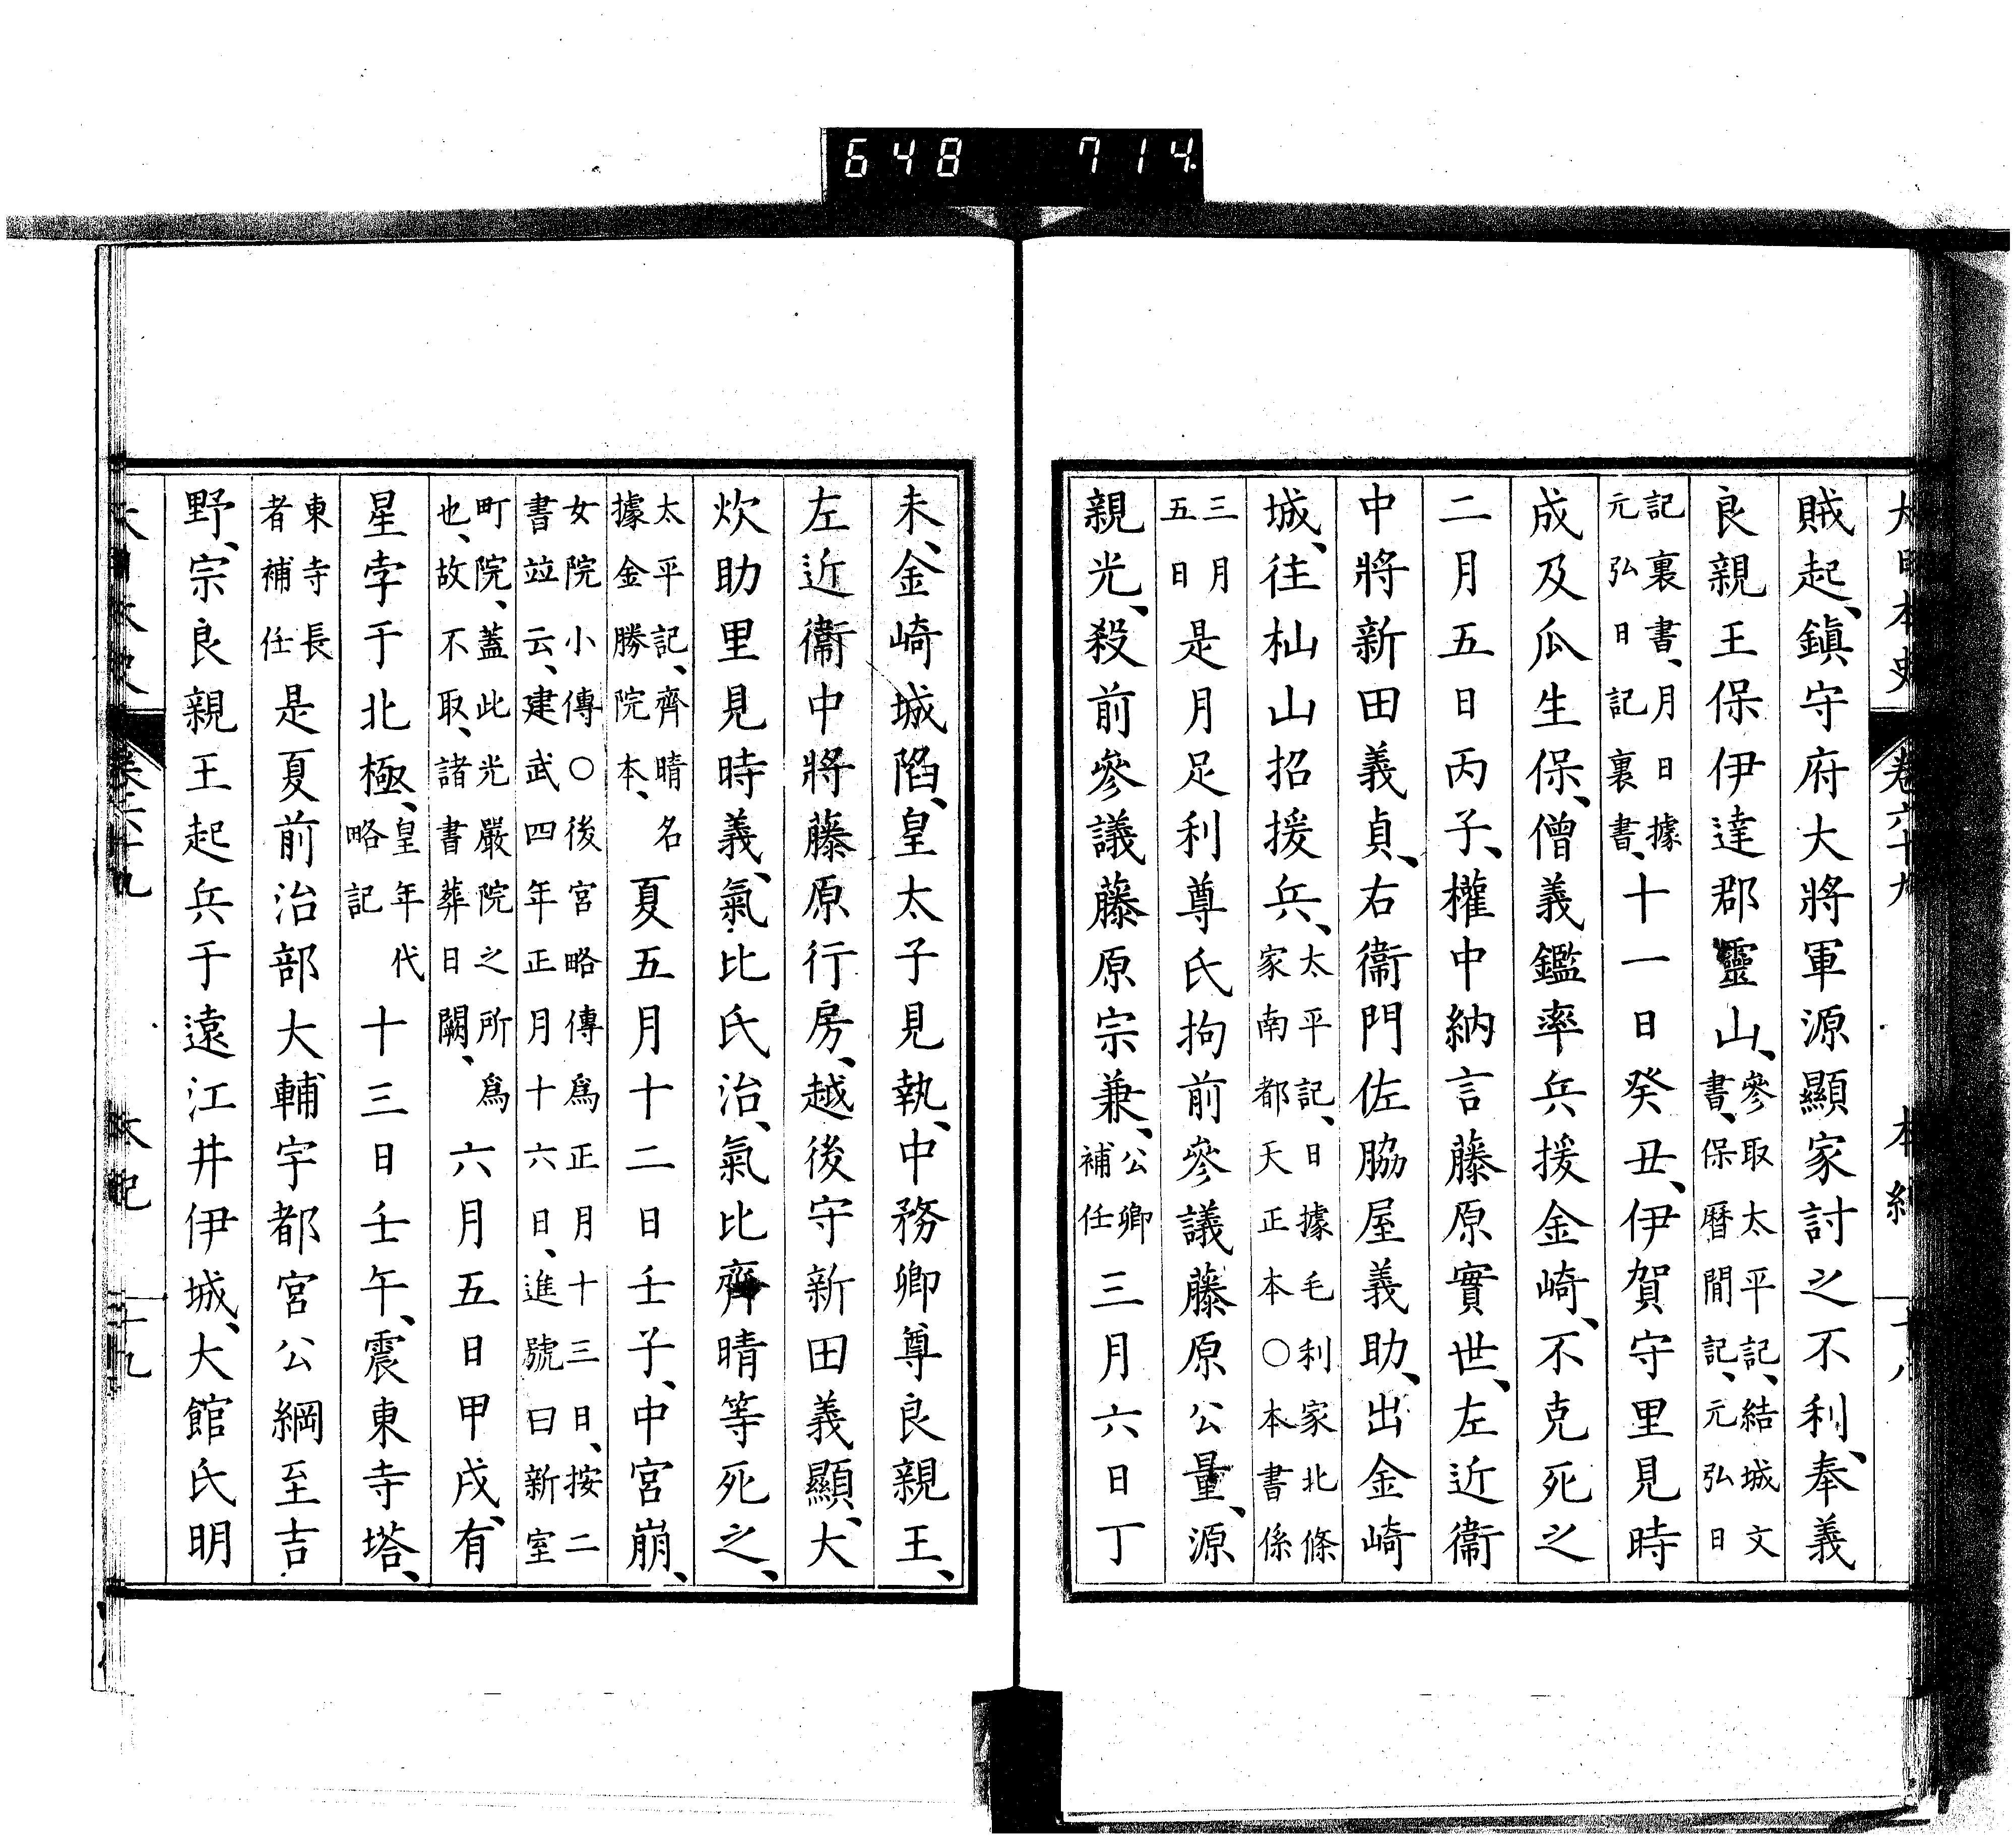 648 714
大日本史 卷六十九 本紀 十八
賊起、鎮守府大將軍源顯家討之不利、奉義
良親王保伊達郡靈山、參取太平記、結城文書、保曆間記、元弘日
記裏書、月日據元弘日記裏書、十一日癸丑、伊賀守里見時
成及瓜生保、僧義鑑率兵援金崎、不克死之
二月五日丙子、權中納言藤原實世、左近衞
中將新田義貞、右衞門佐脇屋義助、出金崎
城、往杣山招援兵、太平記、日據毛利家北條家南都天正本○本書係
三月五日是月足利尊氏拘前參議藤原公量、源
親光、殺前參議藤原宗兼、公卿補任三月六日丁
未、金崎城陷、皇太子見執、中務卿尊良親王、
左近衞中將藤原行房、越後守新田義顯、大
炊助里見時義、氣比氏治、氣比齊晴等死之、
太平記、齊晴名據金勝院本、夏五月十二日壬子、中宮崩、
女院小傳○後宮略傳爲正月十三日、按二書竝云、建武四年正月十六日、進號曰新室
町院、蓋此光嚴院之所爲也、故不取、諸書葬日闕、六月五日甲戌、有
星孛于北極、皇年代略記十三日壬午、震東寺塔、
東寺長者補任是夏前治部大輔宇都宮公綱至吉
野、宗良親王起兵于遠江井伊城、大館氏明
卷六十九 本紀 十九